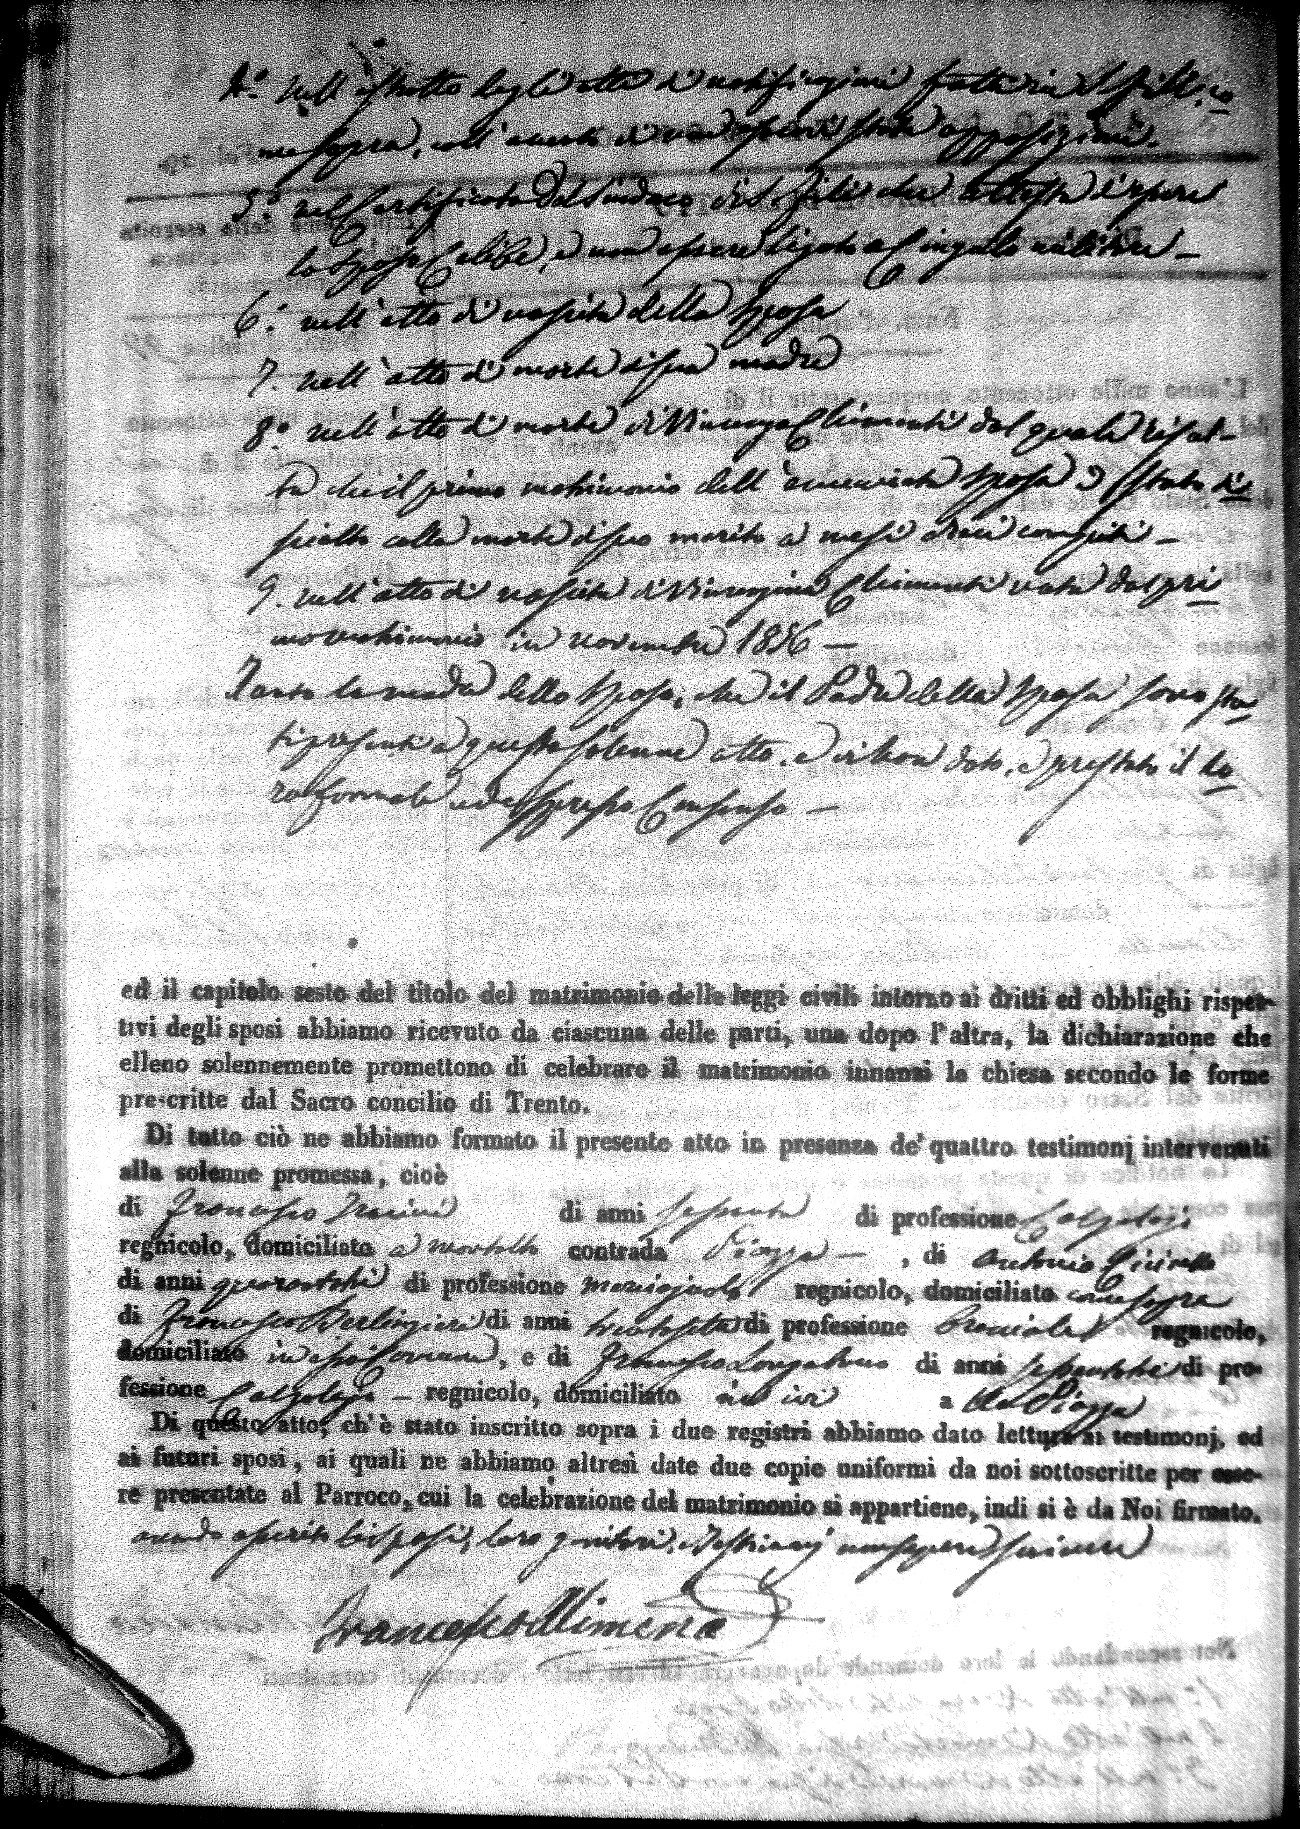 4.° nell'estratto degli atti di notificazioni fatte in S. Fili co
me sopra, coll' di non esservi stata opposizione.
5.° nel Certificato del Sindaco di S. Fili che attesta essere
lo sposo Celibe, e non essere ligato a Cingolo militare —
6.° nell'atto di nascita della sposa
7. nell'atto di morte di sua madre
8.° nell'atto di morte di Vincenzo Chimenti dal quale risul-
ta che il primo matrimonio dell' sposa è stato di
sciolto colla morte di suo marito a mesi dieci compiti —
9. nell'atto di nascita di Chimenti nata dal pri
mo matrimonio in novembre 1856 —
Tanto la madre dello sposo, che il Padre della sposa sono sta
ti presenti a questo solenne atto, e vi han dato, e prestato il lo
ro formale ed espresso Consenso —
ed il capitolo sesto del titolo del matrimonio delle leggi civili intorno ai dritti ed obblighi rispet-
tivi degli sposi abbiamo ricevuto da ciascuna delle parti, una dopo l'altra, la dichiarazione che
elleno solennemente promettono di celebrare il matrimonio innanzi la chiesa secondo le forme
prescritte dal Sacro concilio di Trento.
Di tutto ciò ne abbiamo formato il presente atto in presenza de' quattro testimonj intervenuti
alla solenne promessa, cioè
di Francesco di anni sessanta di professione Calzolajo
regnicolo, domiciliato a contrada Piazza — , di Antonio
di anni di professione regnicolo, domiciliato come sopra
di Francesco Berlingieri di anni trentasette di professione Bracciale regnicolo,
domiciliato in essa Comune, e di Francesco di anni di pro-
fessione Calzolajo — regnicolo, domiciliato ivi a la Piazza
Di questo atto, ch'è stato inscritto sopra i due registri abbiamo dato lettura ai testimonj, ed
ai futuri sposi, ai quali ne abbiamo altresì date due copie uniformi da noi sottoscritte per esse-
re presentate al Parroco, cui la celebrazione del matrimonio si appartiene, indi si è da Noi firmato.
avendo asserito li sposi, loro genitori, e Testimonj non sapere scrivere
Francesco Mimena